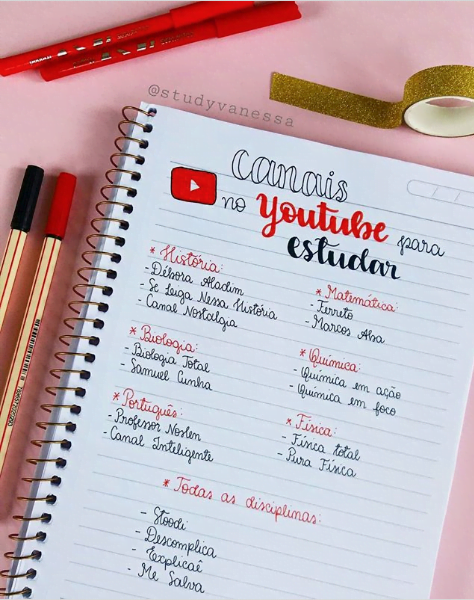 @studyvanessa
canais
no Youtube para
estudar
* História:
- Débora Aladim
- Se Liga Nessa História
- Canal Nostalgia
* Matemática:
- Ferreto
- Marcos Aba
* Biologia:
- Biologia Total
- Samuel Cunha
* Química:
- Química em ação
- Química em foco
* Português:
- Professor Noslen
- Canal Inteligente
* Física:
- Física total
- Pura Física
* Todas as disciplinas:
- Stoodi
- Descomplica
- Explicaê
- Me Salva